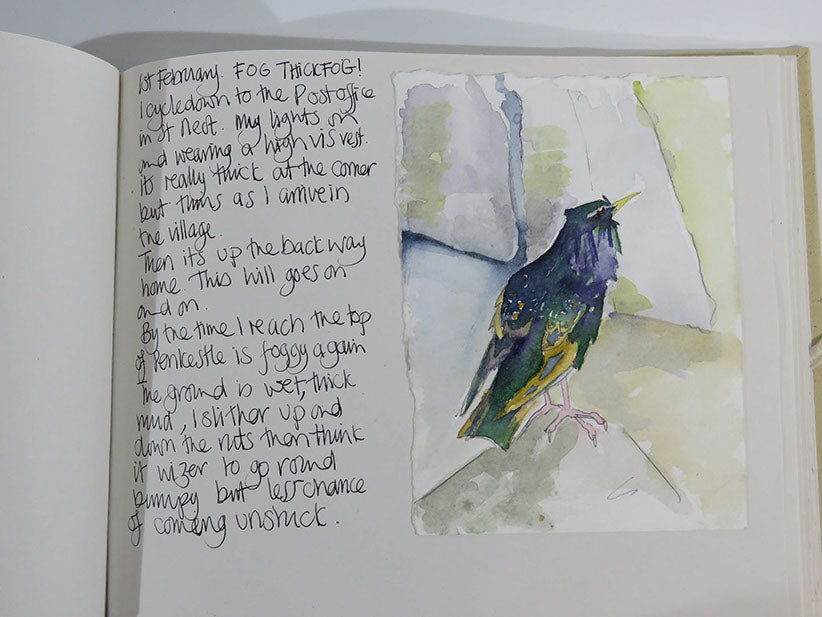 1st February. FOG THICK FOG!
I cycle down to the Post office
in St Neot. My lights on
and wearing a high vis vest.
its really thick at the corner
but thins as I arrive in
the village.
Then its up the back way
home. This hill goes on
and on.
By the time I reach the top
of Penkestle is foggy again
The ground is wet, thick
mud, I slither up and
down the ruts then think
it wizer to go round
bumpy but less chance
of comeing unstuck.